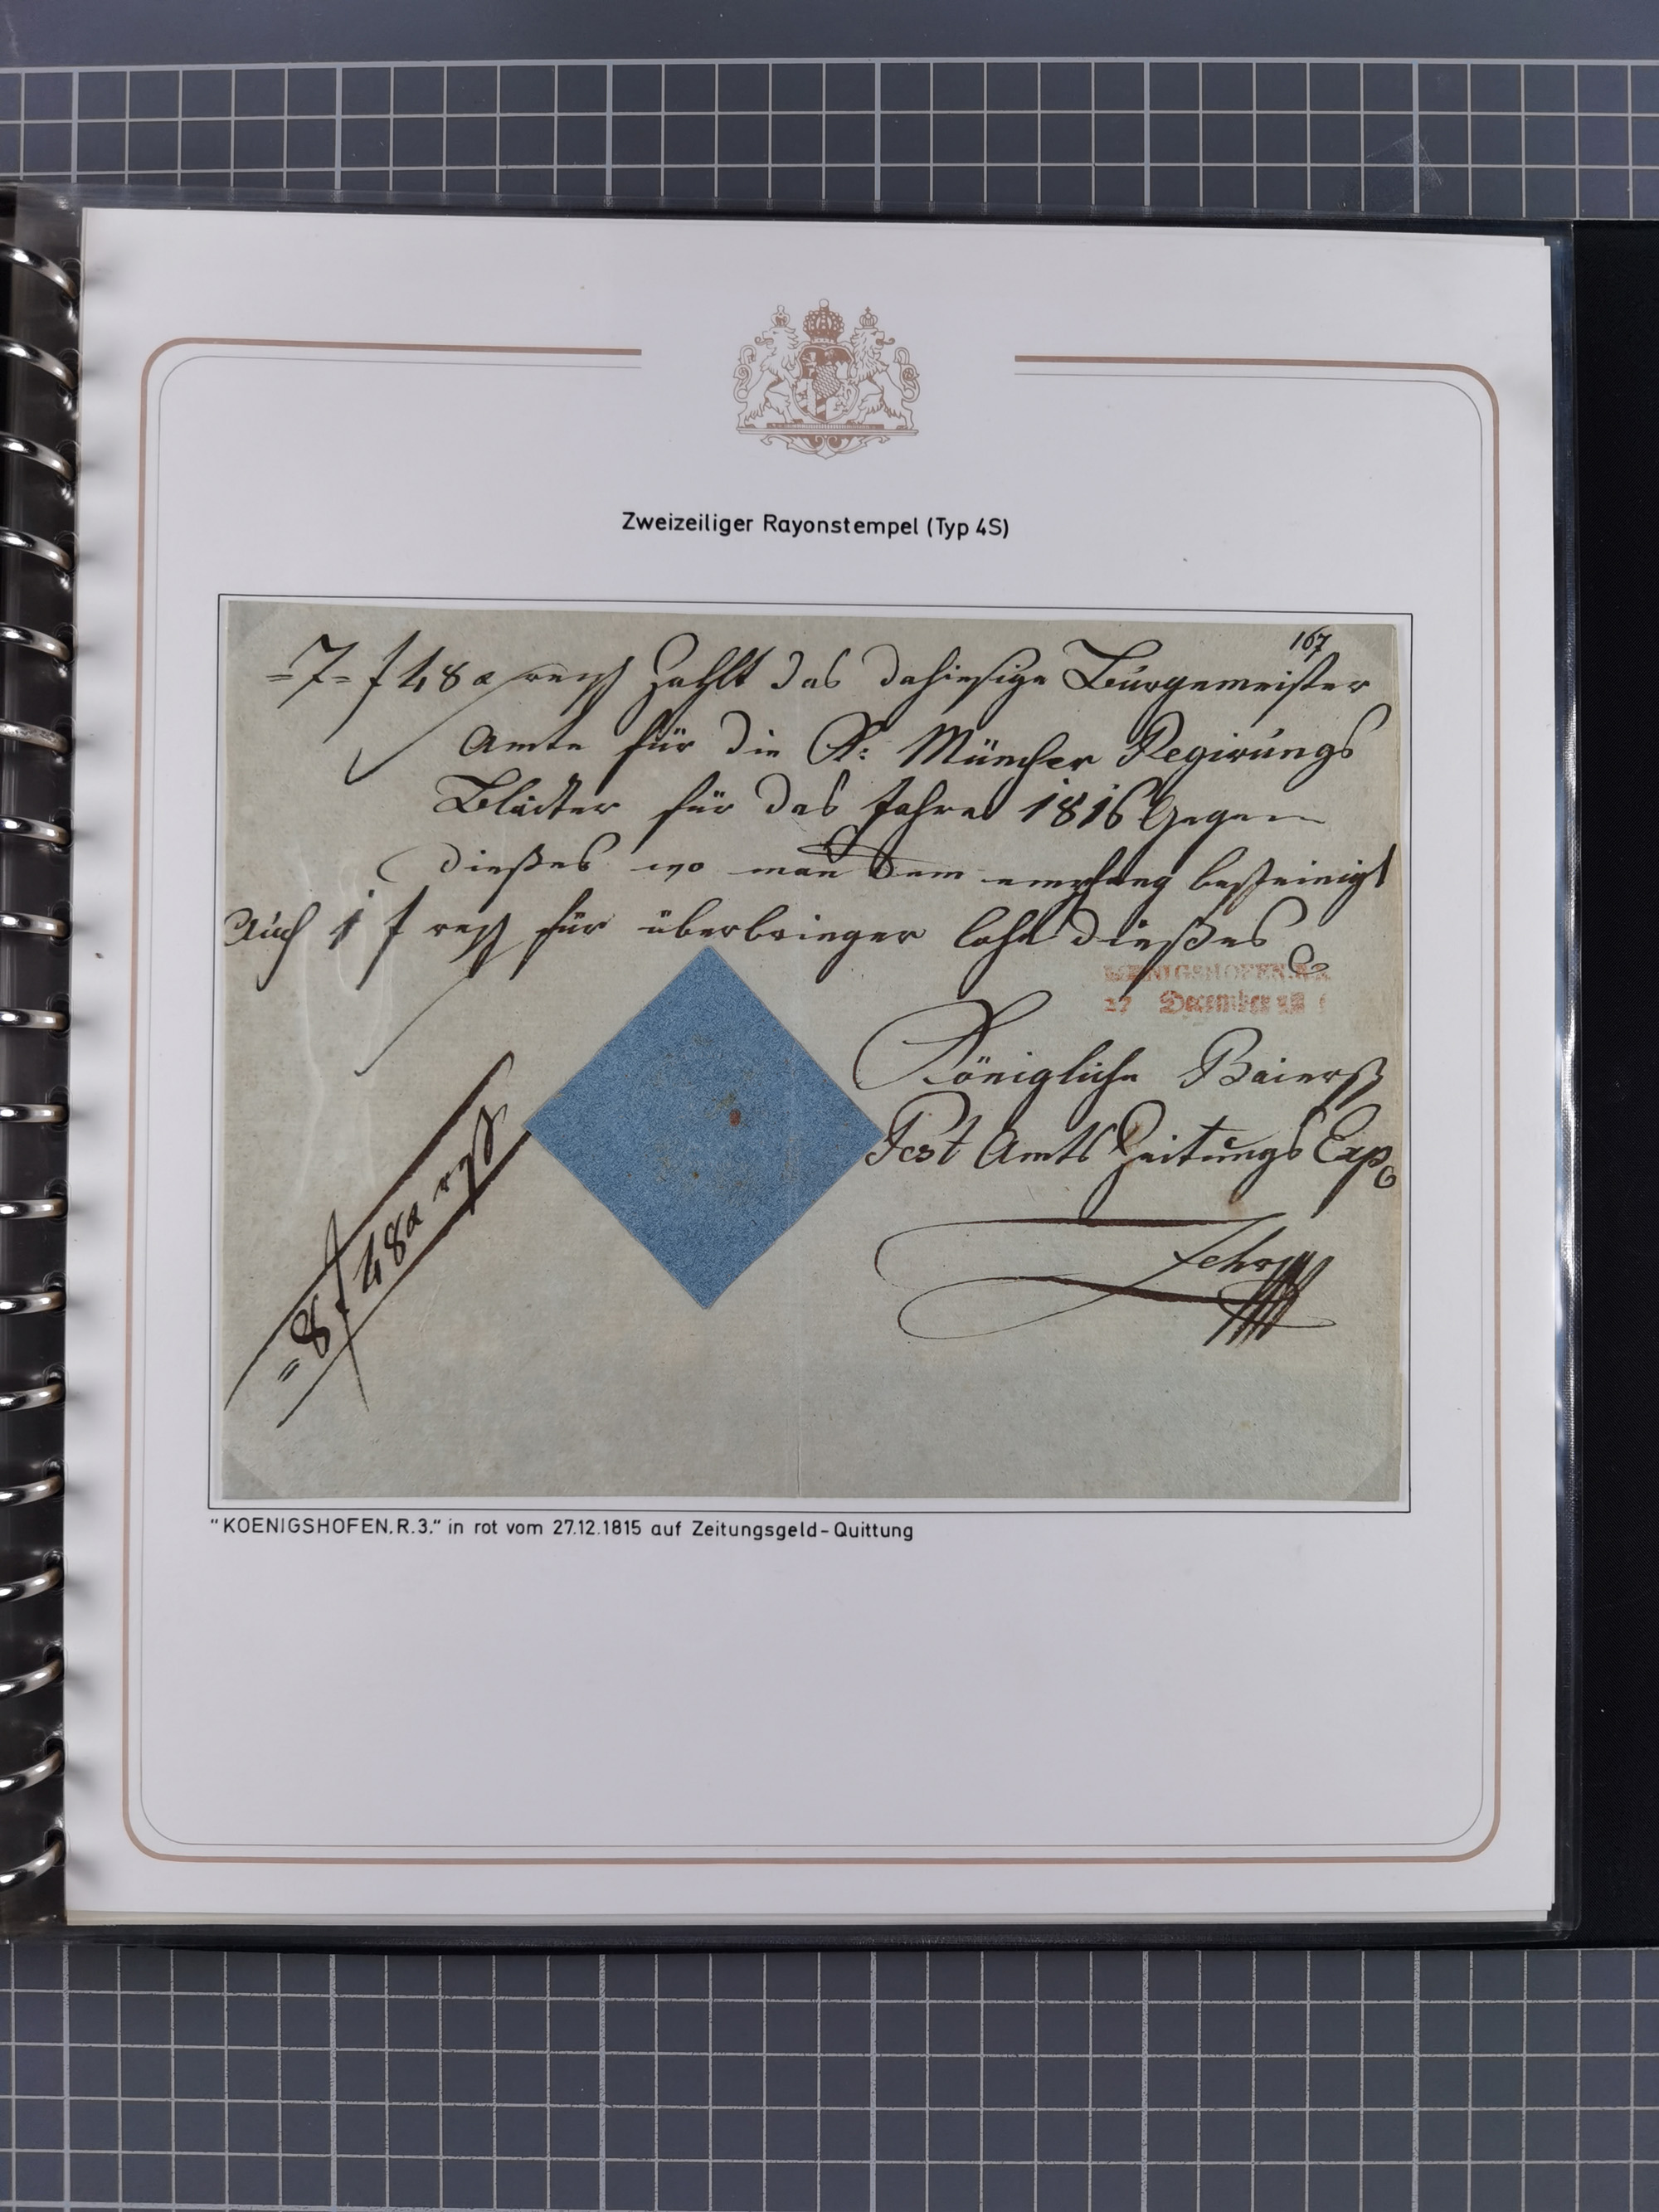 Zweizeiliger Rayonstempel (Typ 4S)
167
=7= f 48 x Zahlt das dahiesige Bürgemeister
Amte für die K: Müncher Regirungs
Blätter für das Jahre 1816 Gegen
dießes wo man dem empfang bescheinigt
Auch 1 f für überbringer lohn dießes
KOENIGSHOFEN.R.3.
27 December 181
Königliche Baiersch
Post Amts Zeitungs Exp
=8 f 48 x
"KOENIGSHOFEN.R.3." in rot vom 27.12.1815 auf Zeitungsgeld-Quittung